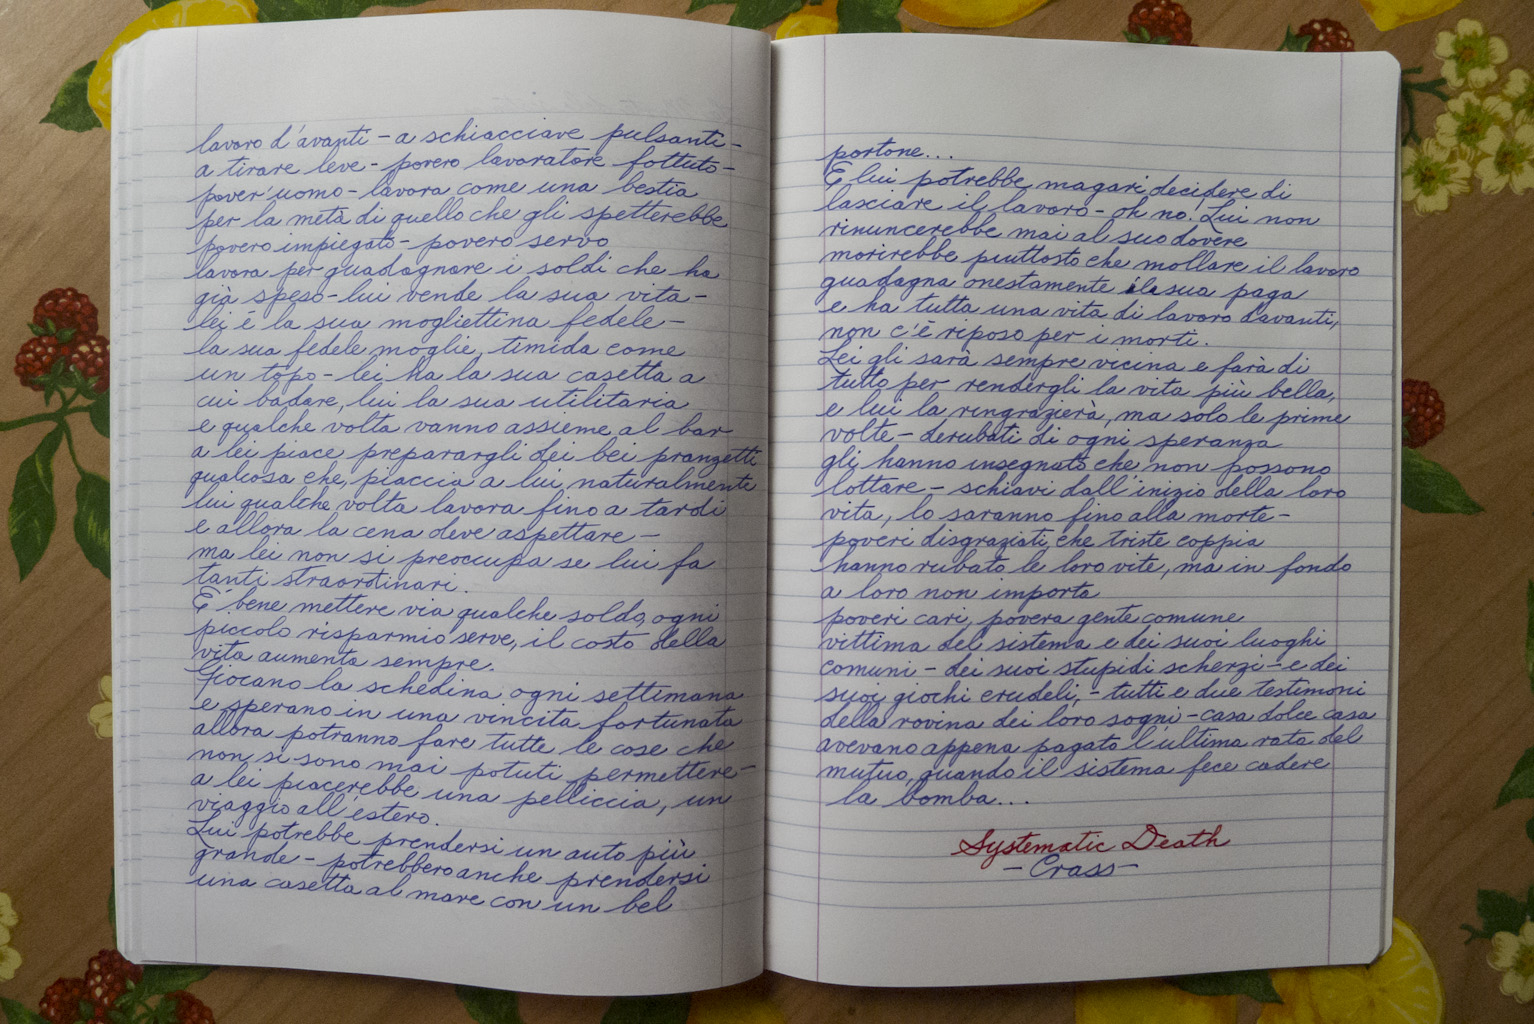 lavoro d'avanti - a schiacciare pulsanti -
a tirare leve - povero lavoratore fottuto -
pover'uomo - lavora come una bestia
per la metà di quello che gli spetterebbe
povero impiegato - povero servo
lavora per guadagnare i soldi che ha
già speso - lui vende la sua vita -
lei é la sua mogliettina fedele -
la sua fedele moglie, timida come
un topo - lei ha la sua casetta a
cui badare, lui la sua utilitaria
e qualche volta vanno assieme al bar
a lei piace preparargli dei bei pranzetti
qualcosa che piaccia a lui, naturalmente
lui qualche volta lavora fino a tardi
e allora la cena deve aspettare -
ma lei non si preoccupa se lui fa
tanti straordinari.
E' bene mettere via qualche soldo, ogni
piccolo risparmio serve, il costo della
vita aumenta sempre.
Giocano la schedina ogni settimana
e sperano in una vincita fortunata
allora potranno fare tutte le cose che
non si sono mai potuti permettere -
a lei piacerebbe una pelliccia, un
viaggio all'estero.
Lui potrebbe prendersi un auto più
grande - potrebbero anche prendersi
una casetta al mare con un bel
portone...
E lui potrebbe magari decidere di
lasciare il lavoro - oh no! Lui non
rinuncerebbe mai al suo dovere
morirebbe piuttosto che mollare il lavoro
guadagna onestamente la sua paga
e ha tutta una vita di lavoro d'avanti,
non c'è riposo per i morti.
Lei gli sarà sempre vicina e farà di
tutto per rendergli la vita più bella,
e lui la ringrazierà, ma solo le prime
volte - derubati di ogni speranza
gli hanno insegnato che non possono
lottare - schiavi dall'inizio della loro
vita, lo saranno fino alla morte -
poveri disgraziati, che triste coppia
hanno rubato le loro vite, ma in fondo
a loro non importa
poveri cari, povera gente comune
vittima del sistema e dei suoi luoghi
comuni - dei suoi stupidi scherzi - e dei
suoi giochi crudeli, - tutti e due testimoni
della rovina dei loro sogni - casa dolce casa
avevano appena pagato l'ultima rata del
mutuo, quando il sistema fece cadere
la bomba...
Systematic Death
- Crass -